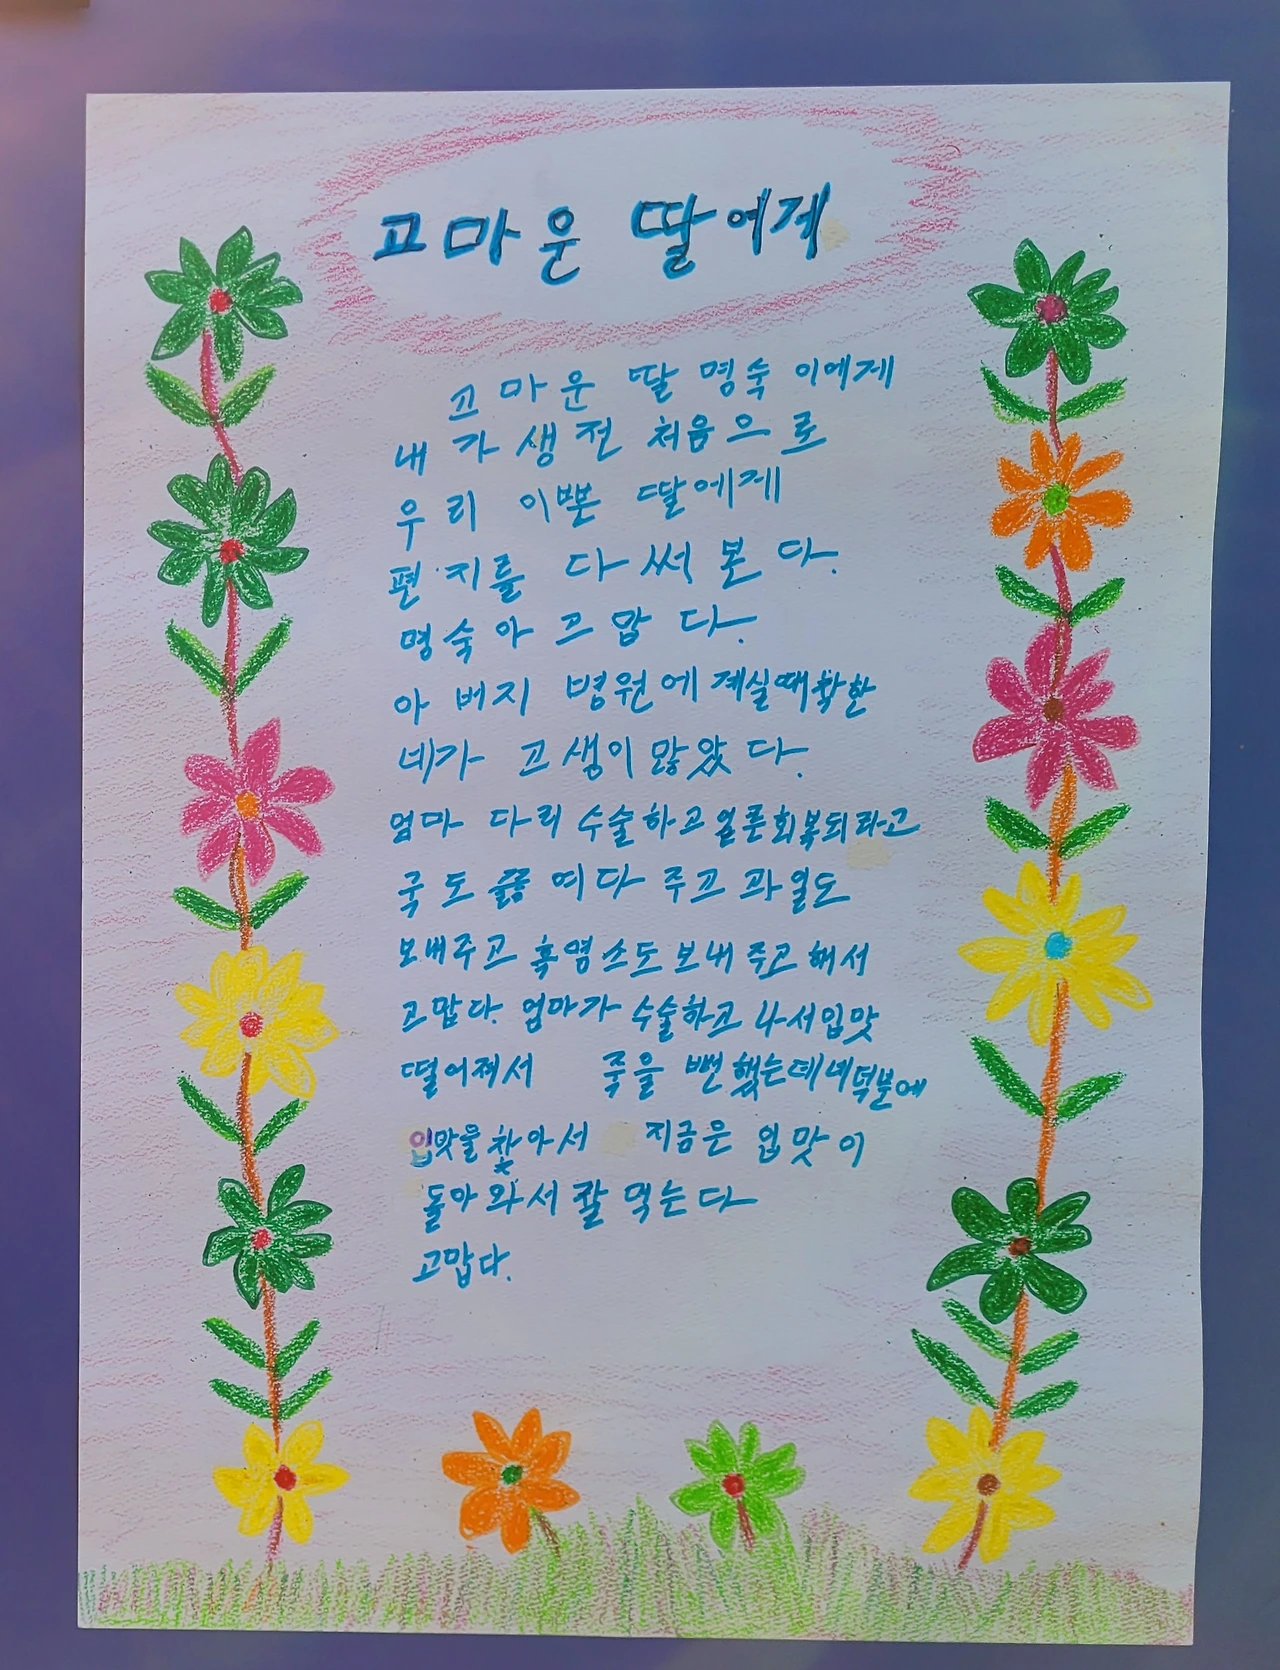 고마운 딸에게
고마운 딸 명숙이에게
내가 생전 처음으로
우리 이쁜 딸에게
편지를 다 써 본다.
명숙아 고맙다.
아버지 병원에 계실때 착한
네가 고생이 많았다.
엄마 다리 수술하고 얼른회복되라고
국도 끓여다 주고 과일도
보내주고 흑염소도 보내주고 해서
고맙다. 엄마가 수술하고 나서입맛
떨어져서 죽을 뻔 했는데네덕분에
입맛을 찾아서 지금은 입맛이
돌아와서 잘 먹는다
고맙다.